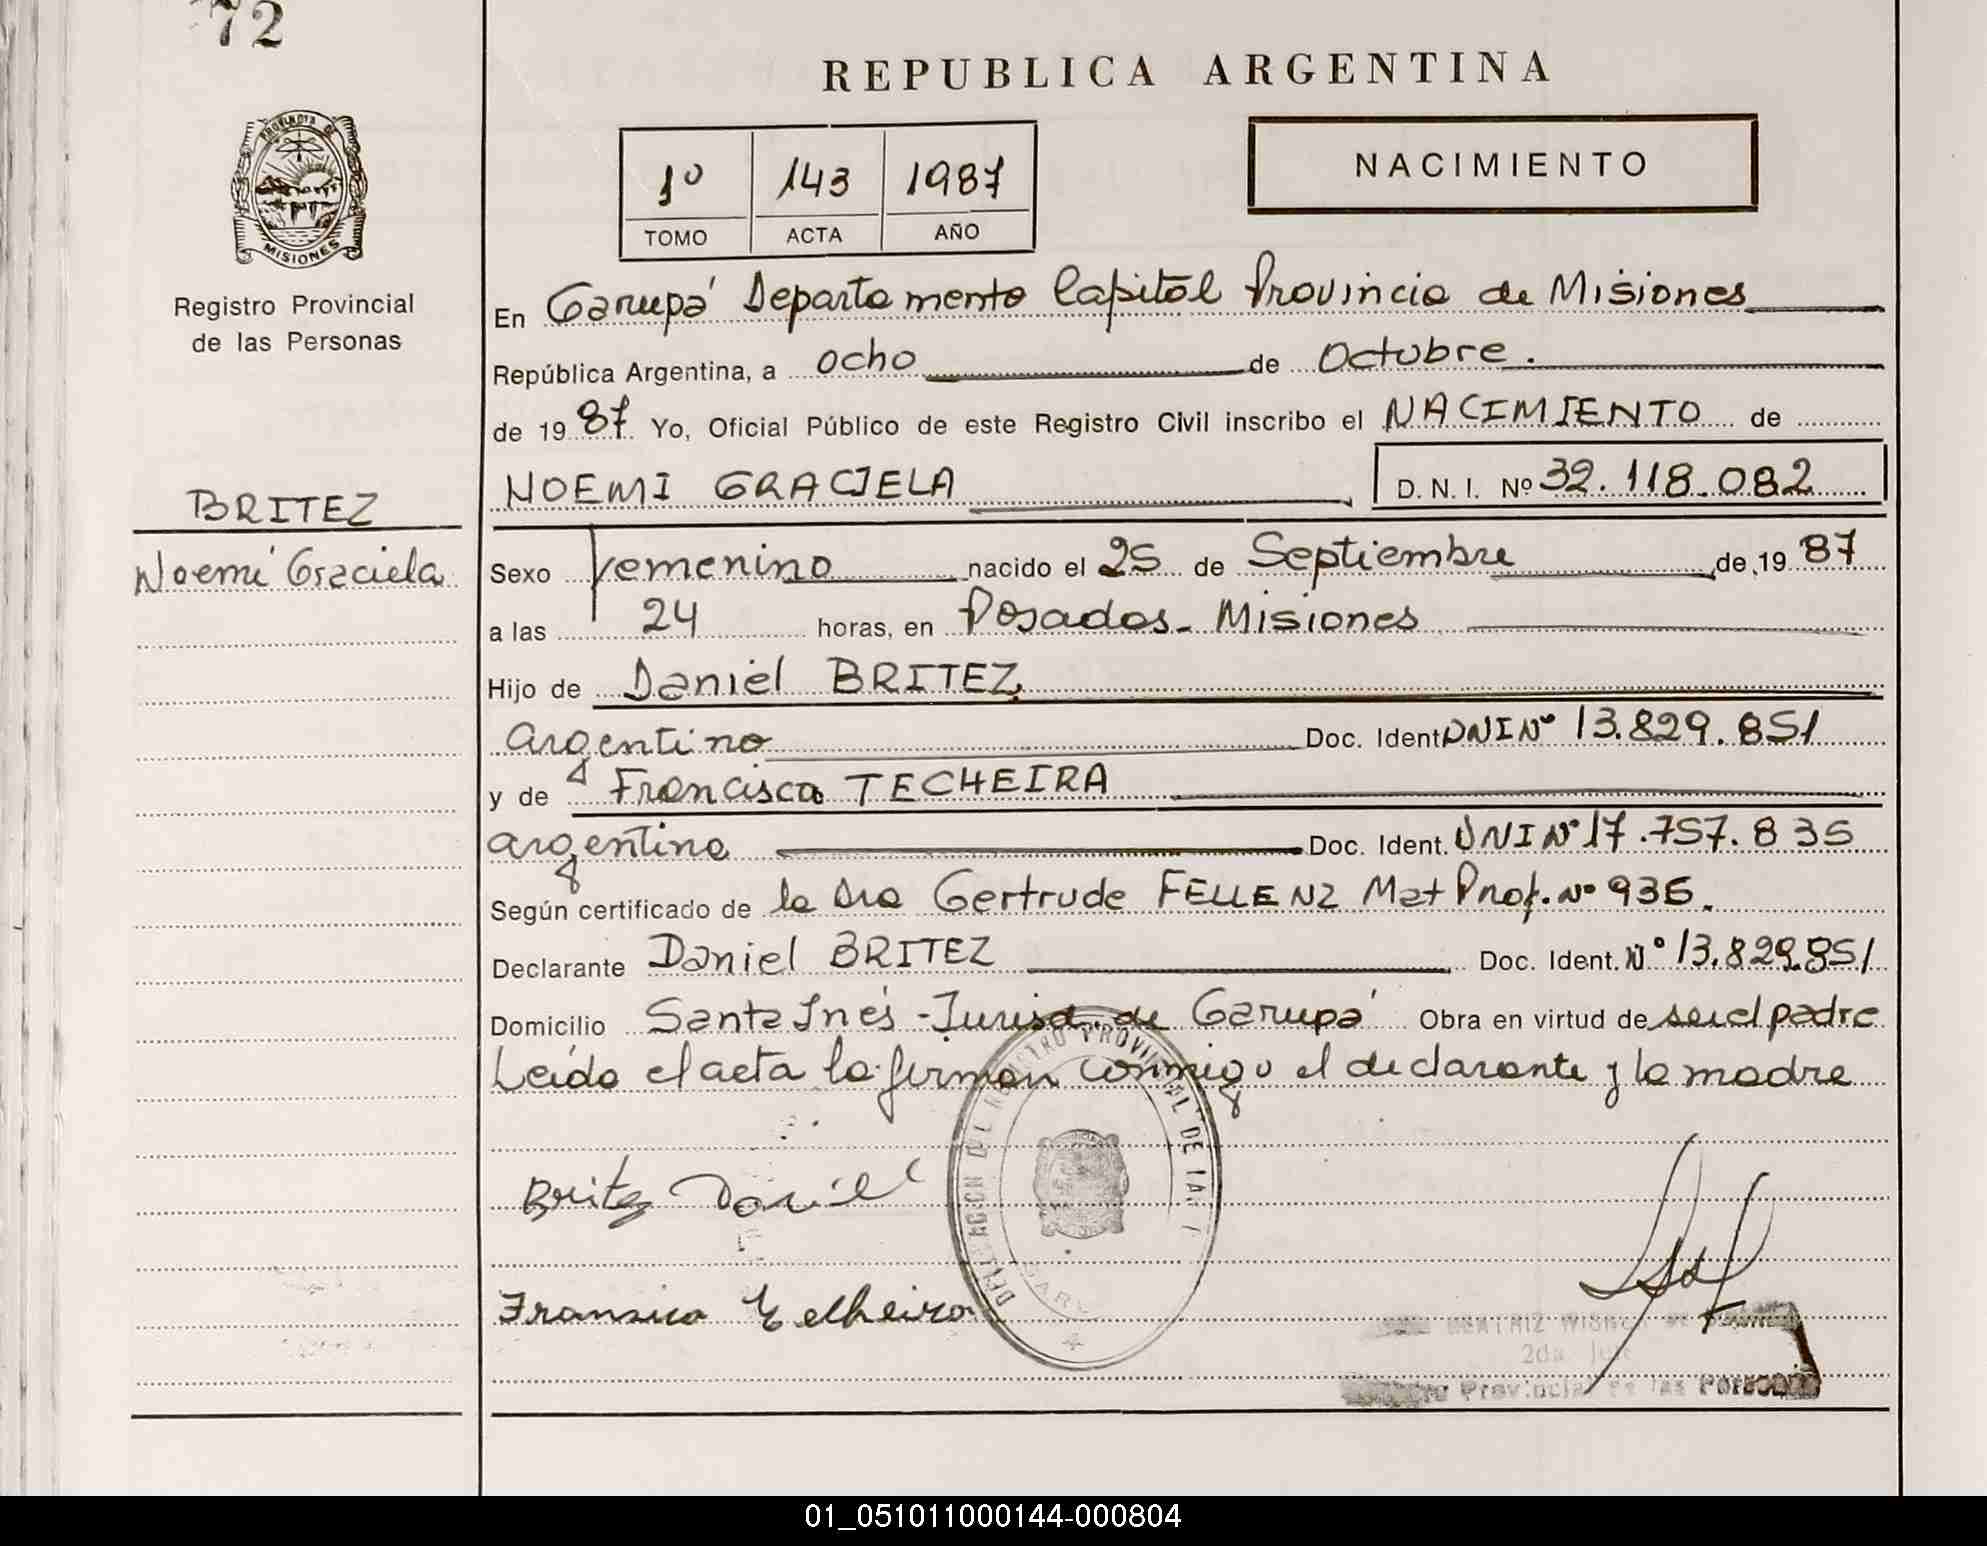 72
REPUBLICA ARGENTINA
PROVINCIA DE
MISIONES
Registro Provincial
de las Personas
1º 143 1987
TOMO ACTA AÑO
NACIMIENTO
En Garupá Departamento Capital Provincia de Misiones
República Argentina, a ocho de Octubre.
de 1987 Yo, Oficial Público de este Registro Civil inscribo el NACIMIENTO de
NOEMI GRACIELA D.N.I. Nº 32.118.082
BRITEZ
Noemí Graciela
Sexo Femenino nacido el 25 de Septiembre de 1987
a las 24 horas, en Posadas - Misiones
Hijo de Daniel BRITEZ
argentino Doc. Ident DNI Nº 13.829.851
y de Francisca TECHEIRA
argentina Doc. Ident. DNI Nº 17.757.835
Según certificado de la Dra Gertrude FELLENZ Mat Prof. Nº 936.
Declarante Daniel BRITEZ Doc. Ident. Nº 13.829.851
Domicilio Santa Inés - Jurisd. de Garupá Obra en virtud de ser el padre
Leída el acta la firman conmigo el declarante y la madre
Britez Daniel
Fransica Techeira
BEATRIZ
2da Jefe
Provincial de las Personas
01_051011000144-000804